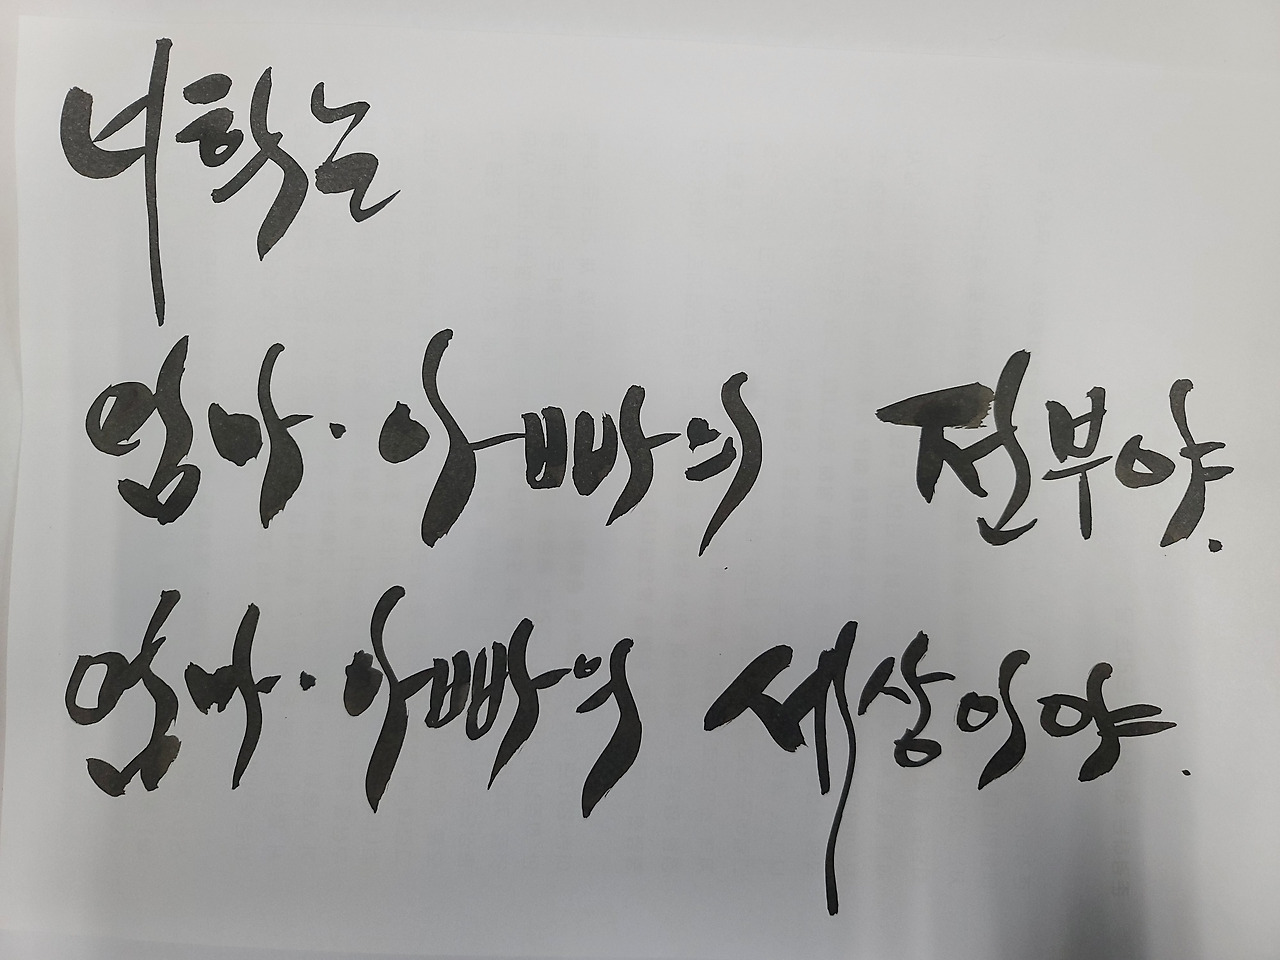 너희는
엄마·아빠의 전부야.
엄마·아빠의 세상이야.